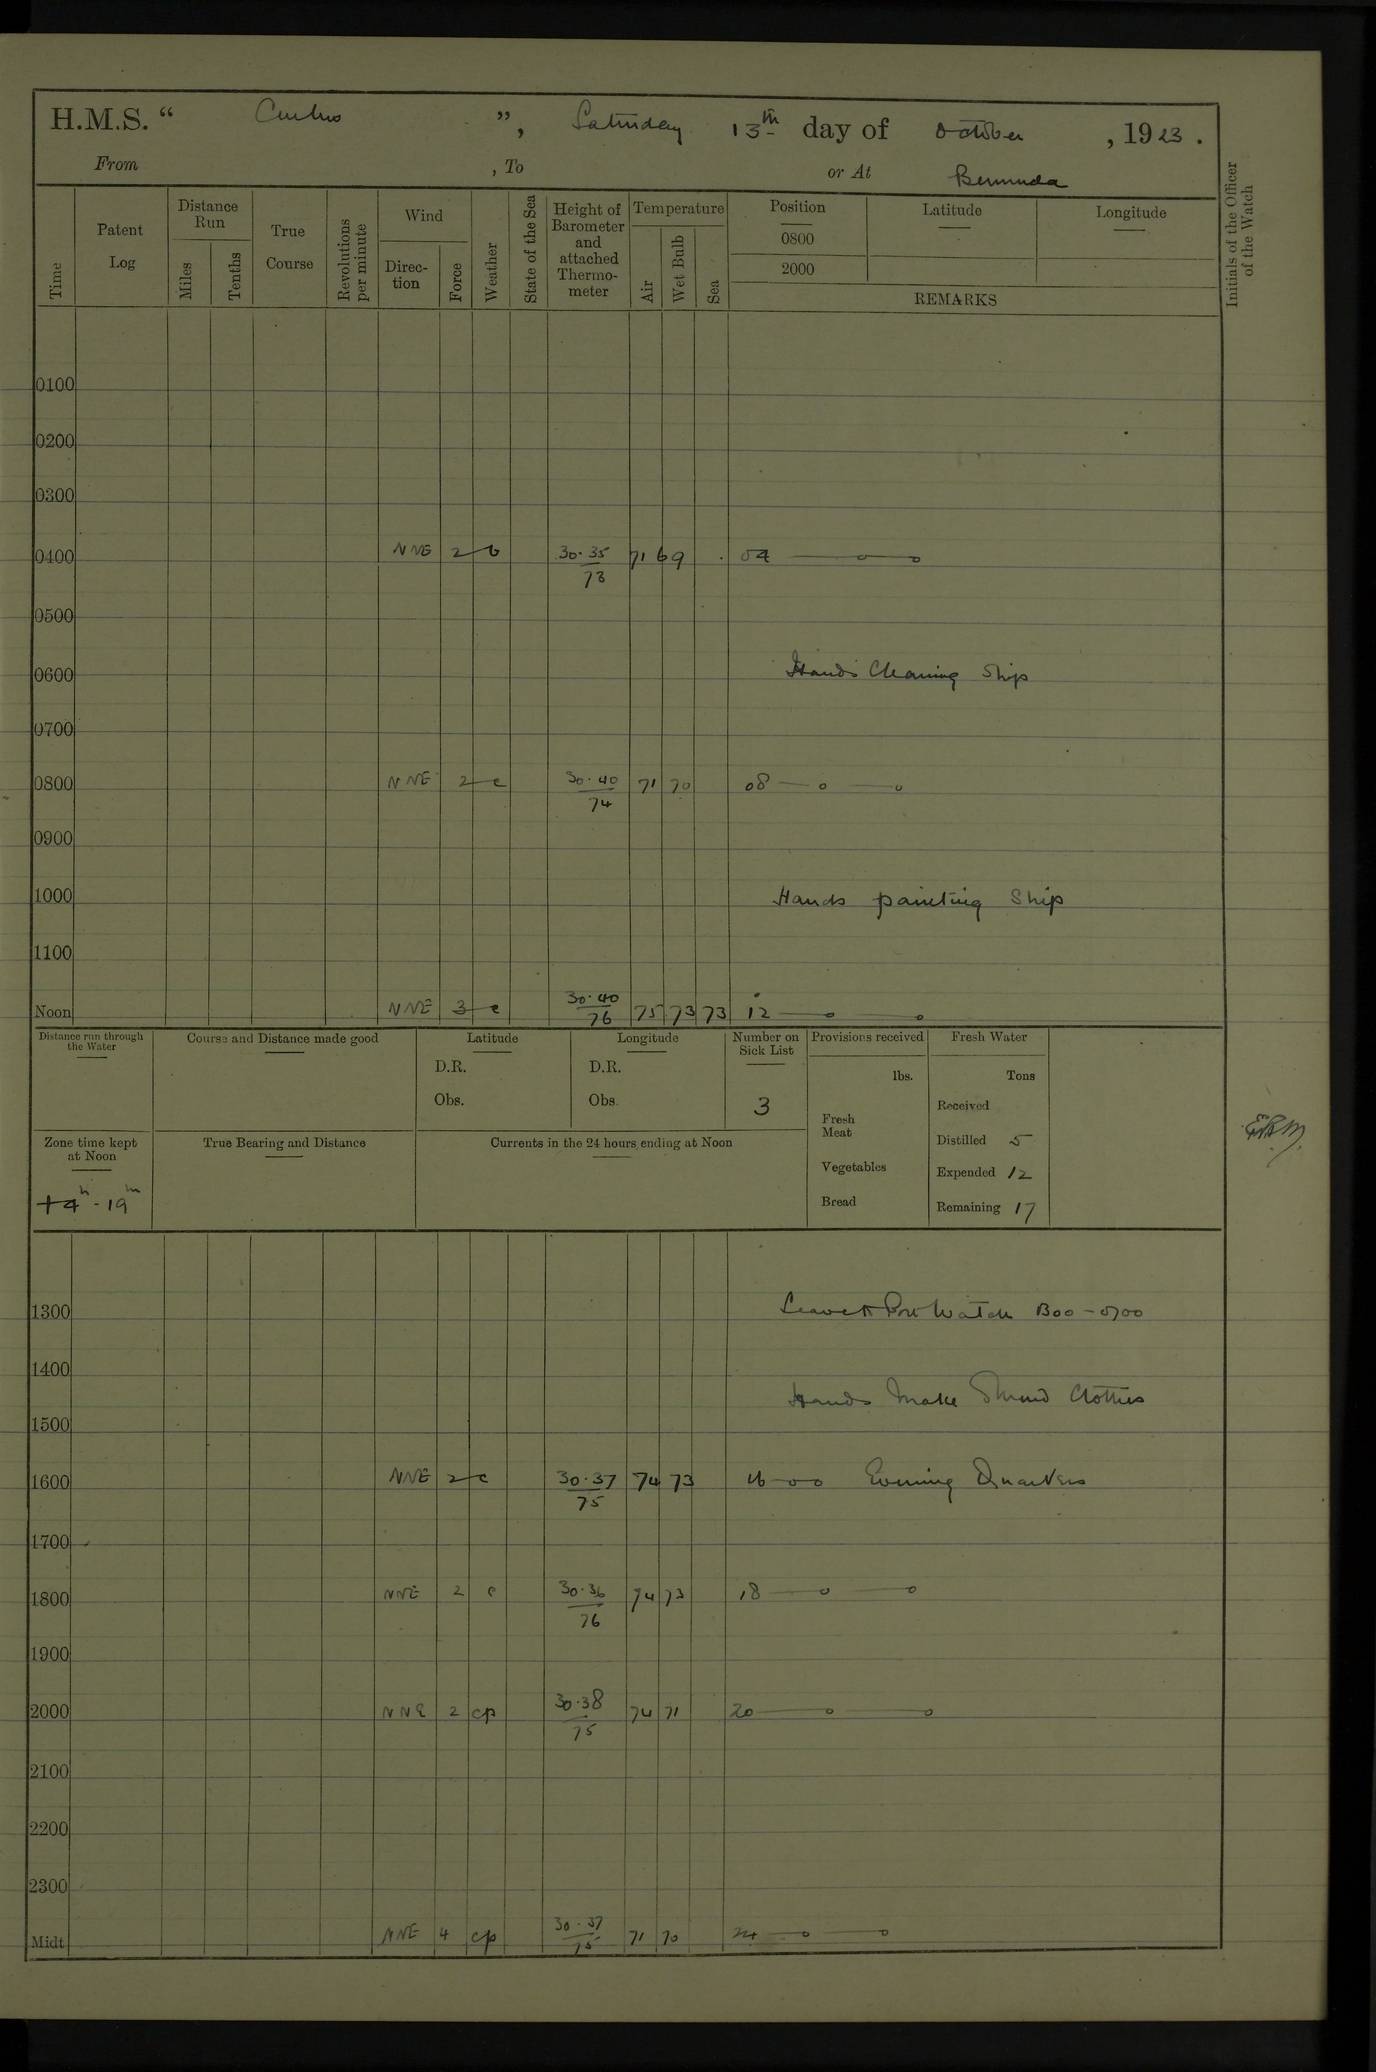 H.M.S. “ Curlew ”, Saturday 13th day of October, 1923.
From , To or At Bermuda
Time
Patent Log
Distance Run
Miles
Tenths
True Course
Revolutions per minute
Wind
Direction
Force
Weather
State of the Sea
Height of Barometer and attached Thermometer
Temperature
Air
Wet Bulb
Sea
Position
0800
2000
Latitude
Longitude
REMARKS
Initials of the Officer of the Watch
0100
0200
0300
0400 NNE 2 b 30.35 71 69 04
73
0500
0600 Hands Cleaning Ship
0700
0800 NNE 2 c 30.40 71 70 08
74
0900
1000 Hands painting Ship
1100
Noon NNE 3 c 30.40 75 73 73 12
76
Distance run through the Water
Course and Distance made good
Latitude
D.R.
Obs.
Longitude
D.R.
Obs.
Number on Sick List
3
Provisions received
lbs.
Fresh Meat
Vegetables
Bread
Fresh Water
Tons
Received
Distilled 5
Expended 12
Remaining 17
Zone time kept at Noon
+4h - 19m
True Bearing and Distance
Currents in the 24 hours ending at Noon
1300 Leave to Port Watch 1300 - 0700
1400
Hands Make & Mend Clothes
1500
1600 NNE 2 c 30.37 74 73 16 Evening Quarters
75
1700
1800 NNE 2 c 30.36 74 73 18
76
1900
2000 NNE 2 cp 30.38 74 71 20
75
2100
2200
2300
Midt NNE 4 cp 30.37 71 70 24
75